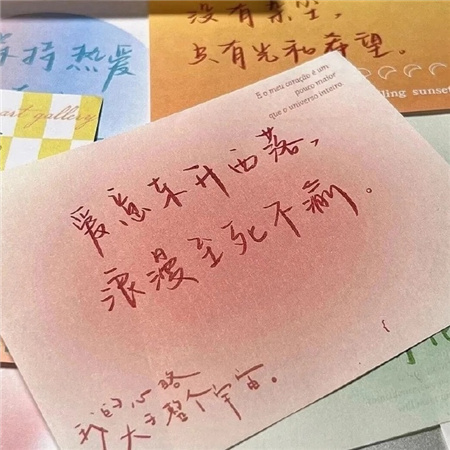 没有
只有光和希望。
持热爱
art gallery
ling sunset
E o meu coração é um
pouco maior
que o universo inteiro
爱意东升西落,
浪漫至死不渝。
我的心略
大于整个宇宙。